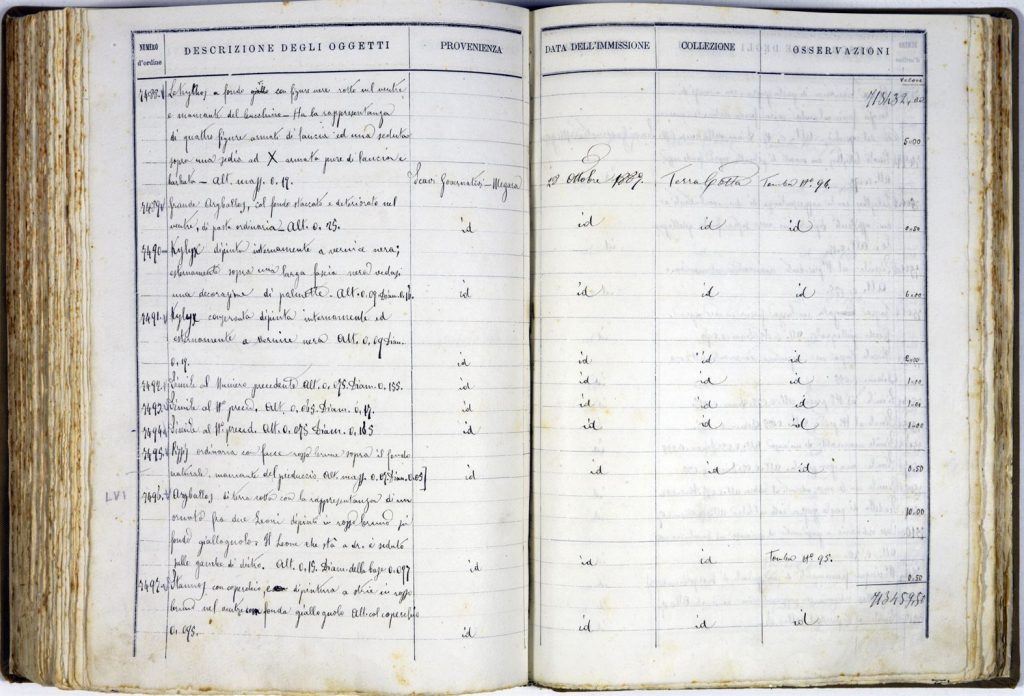 NUMERO d'ordine DESCRIZIONE DEGLI OGGETTI PROVENIENZA DATA DELL'IMMISSIONE COLLEZIONE OSSERVAZIONI
Valore
Lekythos a fondo giallo con figure nere rotto nel ventre 713432,00
e mancante del bocchino — Ha la rappresentanza
di quattro figure armate di lancia ed una seduta 5.00
sopra una sedia ad X armata pure di lancia e
barbata — Alt. mass. 0.19. Scavi Governativi — Megara 12 Ottobre 1887. Terra Cotta Tomba N° 96.
3489 Grande Aryballos, col fondo staccato e deteriorato nel
ventre, di pasta ordinaria. Alt. 0.25. id id id id 0.50
3490 Kylyx dipinta internamente a vernice nera;
esternamente sopra una larga fascia nera vedesi
una decorazione di palmette. Alt. 0.09 Diam. 0.18. id id id id 6.00
3491 Kylyx conservata dipinta internamente ed
esternamente a vernice nera Alt. 0.09 Diam.
0.19. id id id id 2.00
3492 Simile al Numero precedente Alt. 0.075 Diam. 0.155. id id id id 1.00
3493 Simile al N° preced. Alt. 0.065 Diam. 0.17. id id id id 1.00
3494 Simile al N° preced. Alt. 0.075 Diam. 0.165 id id id id 1.00
3495 ordinaria con fasce rosso brune sopra il fondo
naturale. mancante del pieduccio Alt. mass. 0.075 Diam. 0.09] id id id id 0.50
LVI 3496 Aryballos di terra cotta con la rappresentanza di un
ornato fra due Leoni dipinti in rosso bruno su 10.00
fondo giallognolo. Il Leone che sta a dr. è seduto
sulle gambe di dietro. Alt. 0.15. Diam. della base 0.097 id id id Tomba N° 95.
3497 Stamnos con coperchio, dipintura a strie in rosso 0.50
bruno nel fondo giallognolo Alt. col coperchio 713459,50
0.095. id id id id